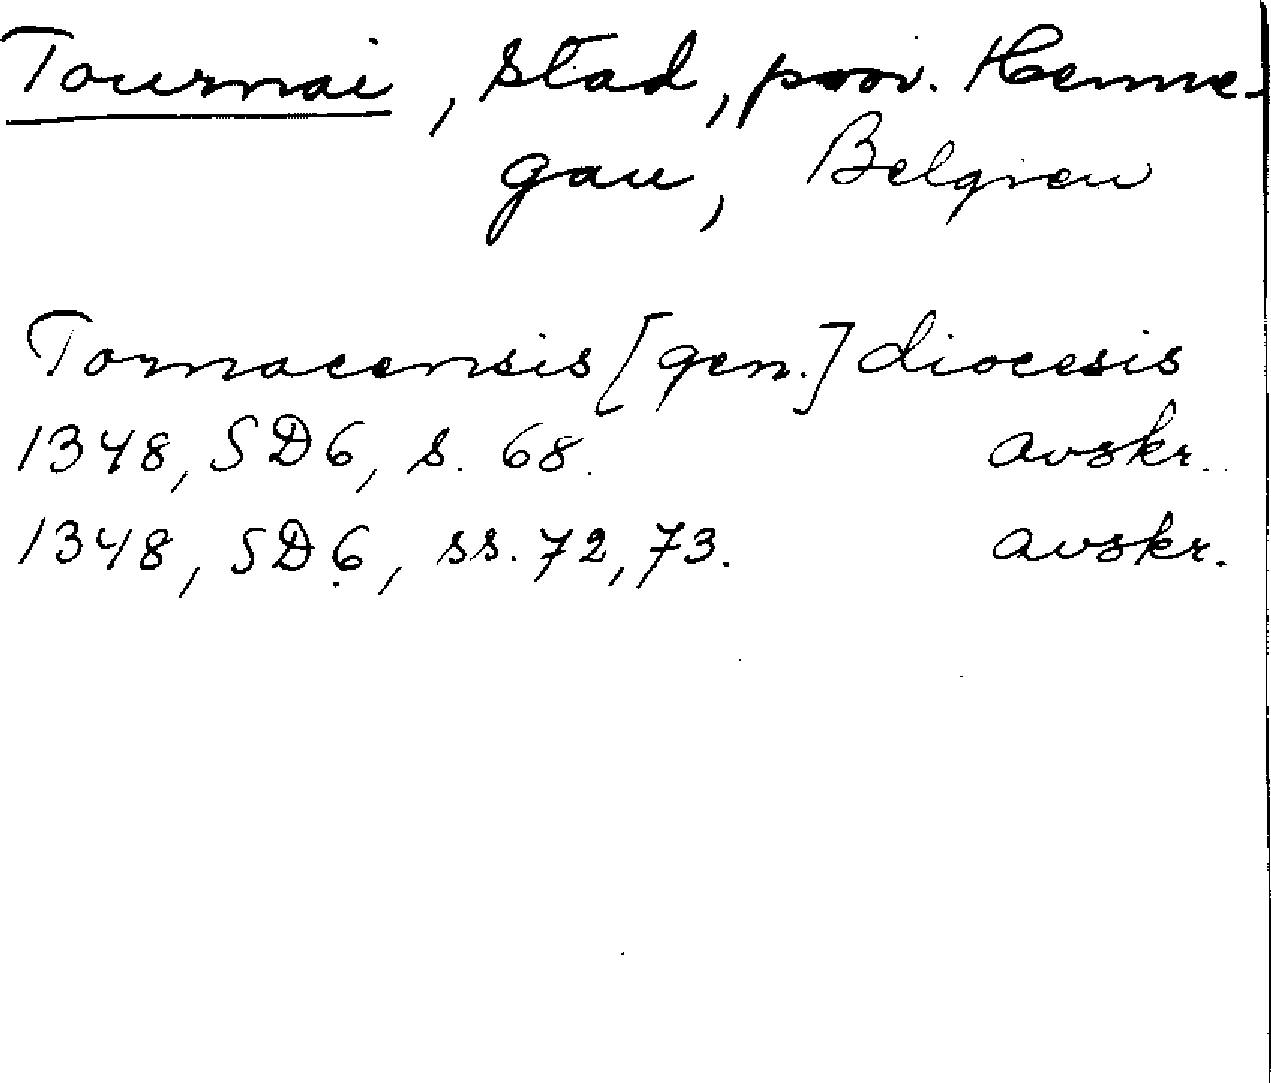 Tournai, stad, prov. Henne-
gau, Belgien
Tornacensis [gen.] diocesis
1348, SD6, s. 68. avskr.
1348, SD6, ss. 72, 73. avskr.